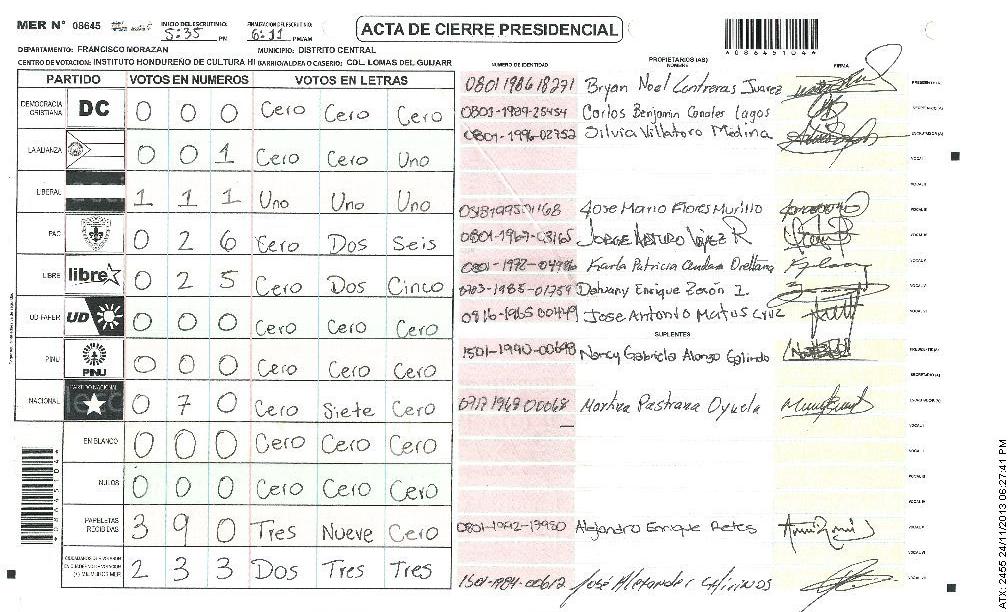 MER N° 08645 INICIO DEL ESCRUTINIO: 5:35 PM FINALIZACION DEL ESCRUTINIO: 6:11 PM/AM ACTA DE CIERRE PRESIDENCIAL
A08645104A
DEPARTAMENTO: FRANCISCO MORAZAN MUNICIPIO: DISTRITO CENTRAL
CENTRO DE VOTACION: INSTITUTO HONDUREÑO DE CULTURA HI BARRIO/ALDEA O CASERIO: COL. LOMAS DEL GUIJARR
NUMERO DE IDENTIDAD PROPIETARIOS (AS) NOMBRE FIRMA
PARTIDO VOTOS EN NUMEROS VOTOS EN LETRAS
DEMOCRACIA CRISTIANA DC 0 0 0 Cero Cero Cero
LA ALIANZA 0 0 1 Cero Cero Uno
LIBERAL 1 1 1 Uno Uno Uno
PAC 0 2 6 Cero Dos Seis
LIBRE libre 0 2 5 Cero Dos Cinco
UD-FAPER UD 0 0 0 Cero Cero Cero
PINU PINU 0 0 0 Cero Cero Cero
NACIONAL PARTIDO NACIONAL 0 7 0 Cero Siete Cero
EN BLANCO 0 0 0 Cero Cero Cero
NULOS 0 0 0 Cero Cero Cero
PAPELETAS RECIBIDAS 3 9 0 Tres Nueve Cero
2 3 3 Dos Tres Tres
Bryan Noel Contreras Juarez PRESIDENTE(A)
Carlos Benjamin Canales Lagos SECRETARIO(A)
0801-1996-02752 Silvia Villatoro Medina ESCRUTADOR(A)
VOCAL I
VOCAL II
Jose Mario Flores Murillo VOCAL III
VOCAL IV
Karla Patricia Orellana VOCAL V
Enrique
Jose Antonio Matus Cruz
SUPLENTES
1501-1990-00698 Nancy Gabriela Alonzo Galindo PRESIDENTE(A)
SECRETARIO(A)
Martha Pastrana Oyuela ESCRUTADOR(A)
VOCAL I
VOCAL II
VOCAL III
VOCAL IV
Alejandro Enrique Retes VOCAL V
VOCAL VI
José Alexander VOCAL VII
ATX: 2455 24/11/2013 06:27:41 PM